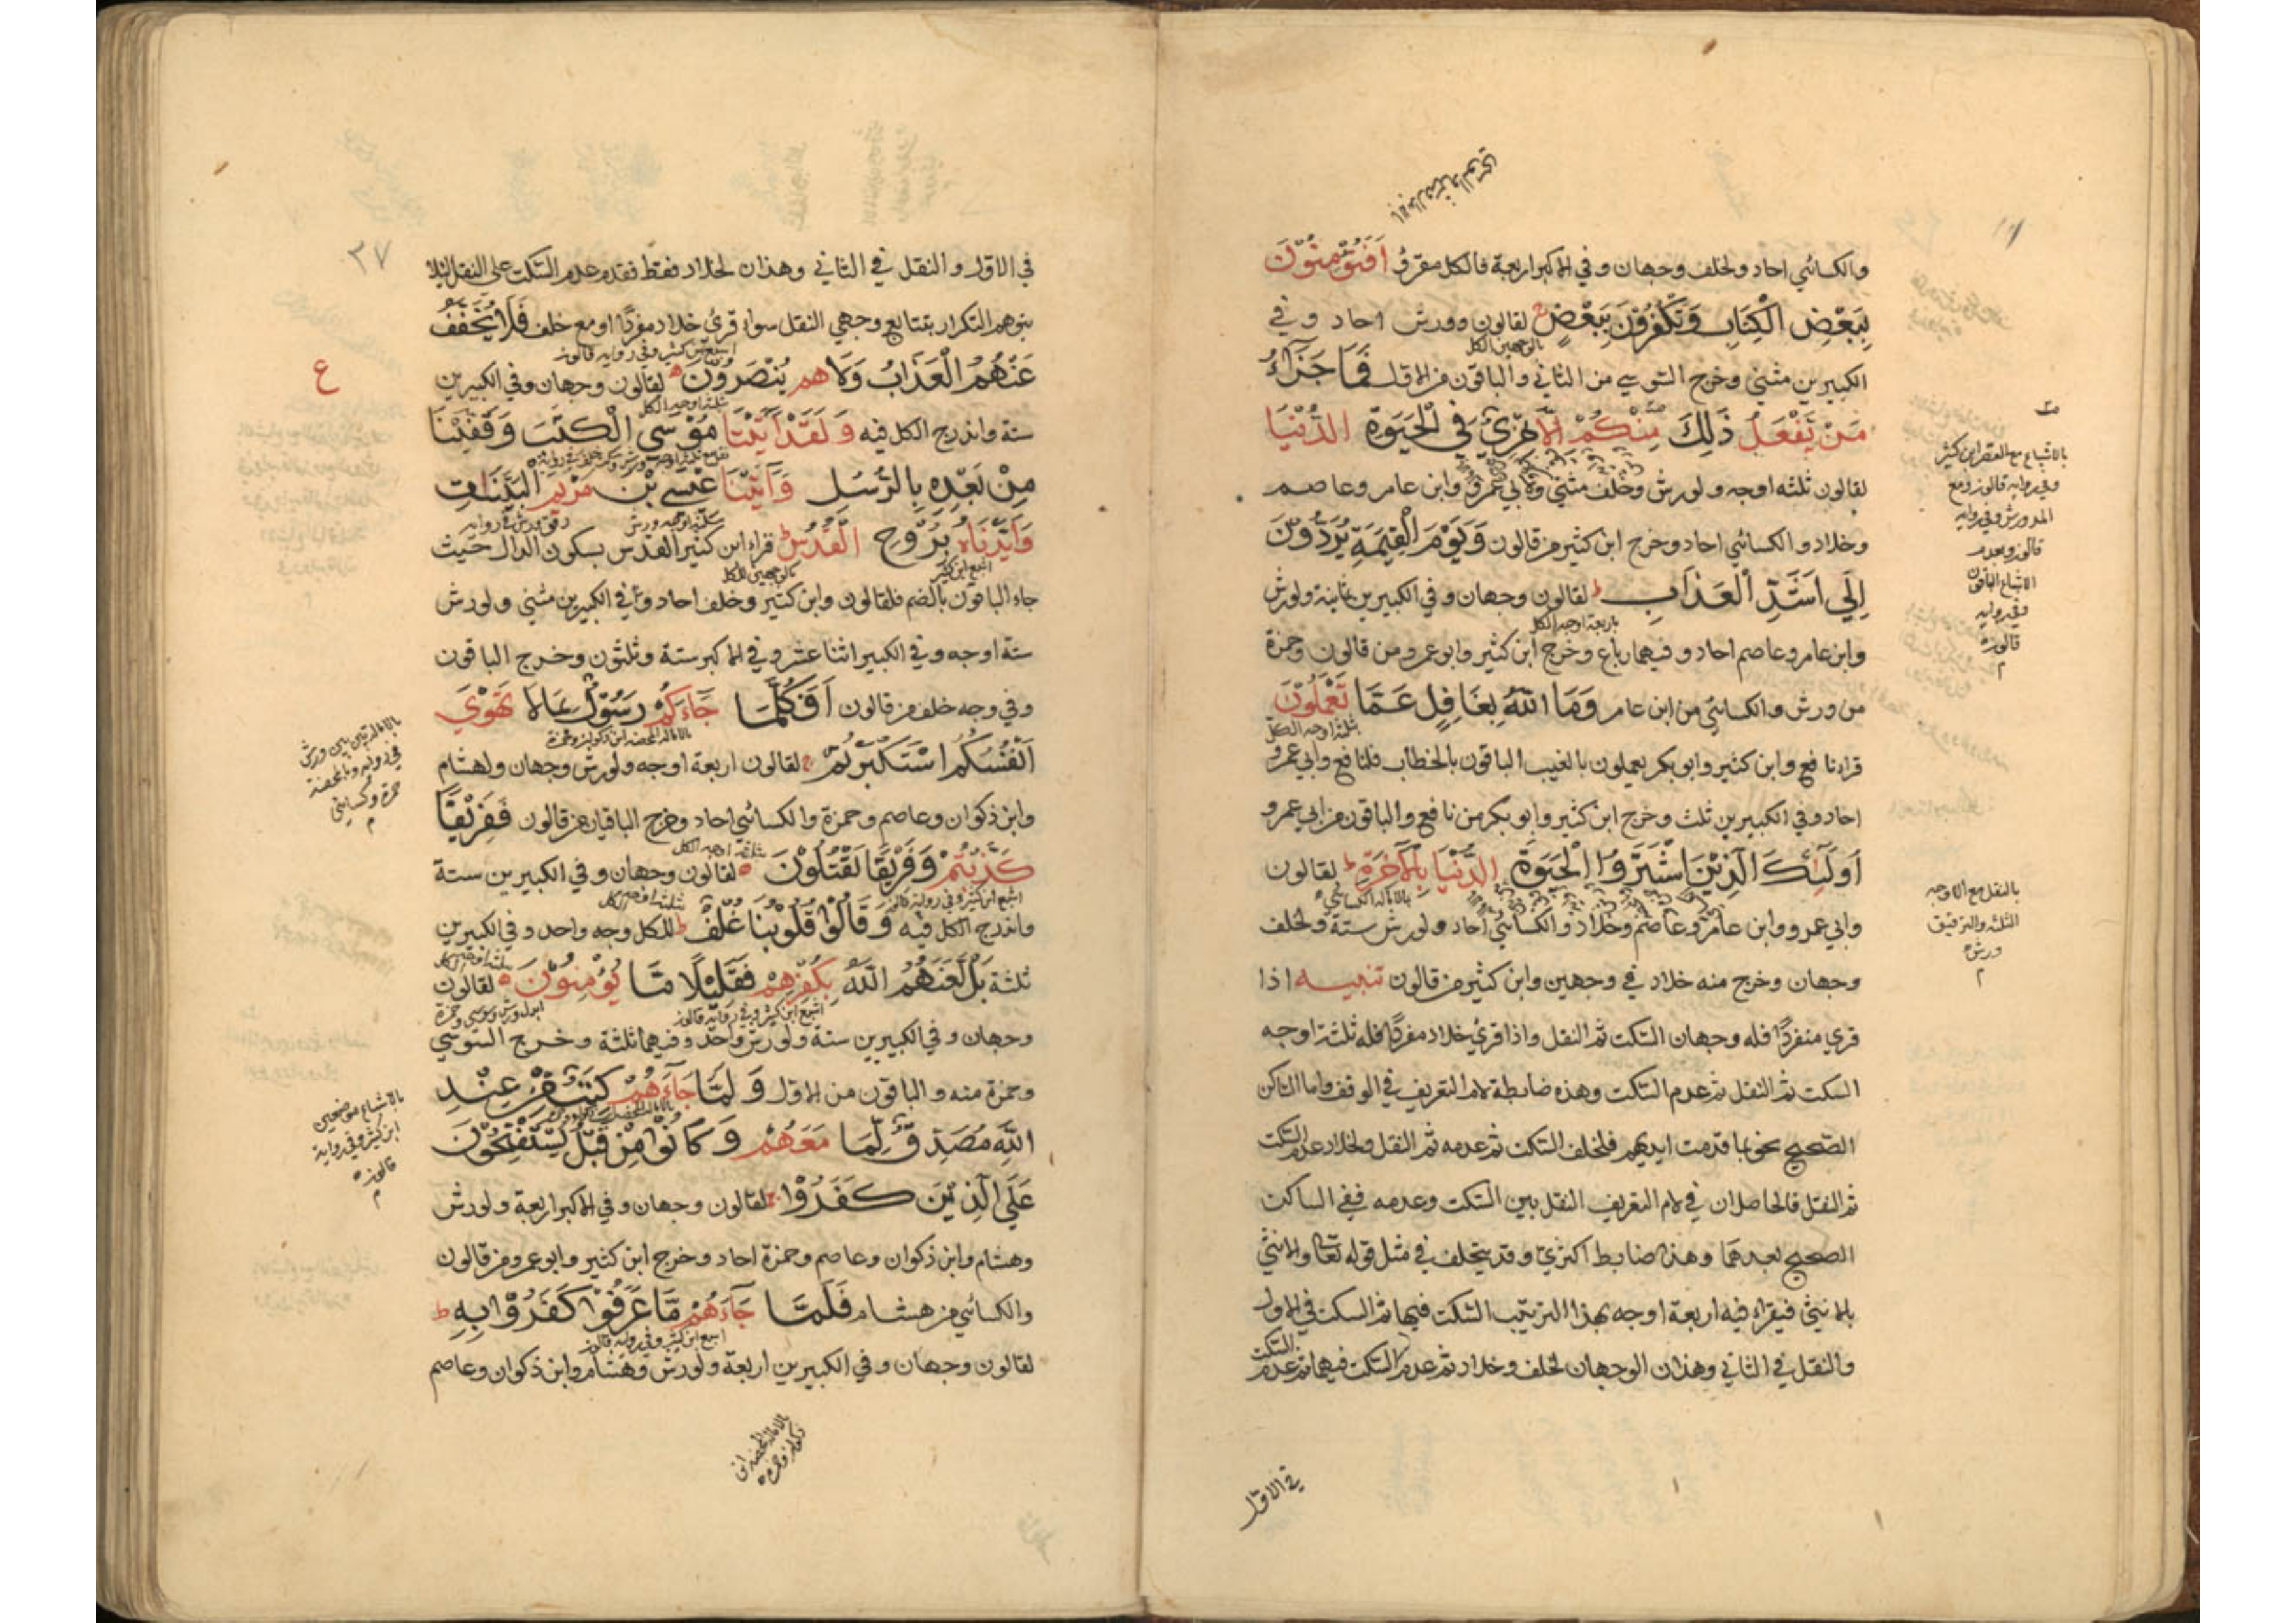 والكسائي احاد ولخلف وجهان وفي الاكبر اربعة فالكل مقرؤ اَفَتُؤْمِنُوْنَ
بِبَعْضِ الْكِتَابِ وَتَكْفُرُوْنَ بِبَعْضٍ لقالون وورش احاد وفي
الكبيرين مثنى وخرج السوسي من الثاني والباقون من الاول فَمَا جَزَآءُ
مَنْ يَفْعَلُ ذٰلِكَ مِنْكُمْ اِلَّا خِزْيٌ فِي الْحَيٰوةِ الدُّنْيَا
لقالون ثلثه اوجه ولورش وخلف مثنى ولابي عمرو وابن عامر وعاصم
وخلاد والكسائي احاد وخرج ابن كثير من قالون وَيَوْمَ الْقِيٰمَةِ يُرَدُّوْنَ
اِلٰى اَشَدِّ الْعَذَابِ لقالون وجهان وفي الكبيرين ثمانية ولورش
وابن عامر وعاصم احاد وفيهما رباع وخرج ابن كثير وابو عمرو من قالون وحمزة
من ورش والكسائي من ابن عامر وَمَا اللّٰهُ بِغَافِلٍ عَمَّا تَعْمَلُوْنَ
قراء نافع وابن كثير وابو بكر يعملون بالغيب الباقون بالخطاب فلنافع وابي عمرو
احاد وفي الكبيرين ثلث وخرج ابن كثير وابو بكر من نافع والباقون من ابي عمرو
اُولٰئِكَ الَّذِيْنَ اشْتَرَوُا الْحَيٰوةَ الدُّنْيَا بِالْاٰخِرَةِ لقالون
وابي عمرو وابن عامر وعاصم وخلاد والكسائي احاد ولورش ستة ولخلف
وجهان وخرج منه خلاد في وجهين وابن كثير من قالون تنبيه اذا
قرئ منفردًا فله وجهان السكت ثم النقل واذا قرئ خلاد مفردًا فله ثلثة اوجه
السكت ثم النقل ثم عدم السكت وهذه ضابطة لام التعريف في الوقف واما الساكن
الصحيح نحو بما قدمت ايديهم فلخلف السكت ثم عدمه ثم النقل ولخلاد عدم السكت
ثم النقل فالحاصل ان في لام التعريف النقل بين السكت وعدمه ففي الساكن
الصحيح بعدهما وهذا ضابط اكثري وقد يتخلف في مثل قوله تعا والانثى
بالانثى فيقراء فيه اربعة اوجه بهذا الترتيب السكت فيهما ثم السكت في الاول
والنقل في الثاني وهذان الوجهان لخلف وخلاد ثم عدم السكت فيهما ثم عدم السكت
في الاول
بالاشباع مع القصر ابن كثير
وفي رواية قالون ومع
المد ورش وفي رواية
قالون وبعدم
الاشباع الباقون
وفي رواية
قالون
بالنقل مع الاوجه
الثلثه والترقيق
ورش
٣٧
في الاول والنقل في الثاني وهذان لخلاد فقط فقدم عدم السكت على النقل لئلا
يتوهم التكرار بتتابع وجهي النقل سواء قرئ خلاد مفردًا او مع خلف فَلَا يُخَفَّفُ
عَنْهُمُ الْعَذَابُ وَلَا هم يُنْصَرُوْنَ لقالون وجهان وفي الكبيرين
ستة واندرج الكل فيه وَلَقَدْ اٰتَيْنَا مُوْسَى الْكِتٰبَ وَقَفَّيْنَا
مِنْ بَعْدِهٖ بِالرُّسُلِ وَاٰتَيْنَا عِيْسَى بْنَ مَرْيَمَ الْبَيِّنَاتِ
وَاَيَّدْنَاهُ بِرُوْحِ الْقُدُسِ قراء ابن كثير القدس بسكون الدال حيث
جاء الباقون بالضم فلقالون وابن كثير وخلف احاد وفي الكبيرين مثنى ولورش
ستة اوجه وفي الكبير اثنا عشر وفي الاكبر ستة وثلثون وخرج الباقون
وفي وجه خلف من قالون اَفَكُلَّمَا جَآءَكُمْ رَسُوْلٌ بِمَا لَا تَهْوٰى
اَنْفُسُكُمُ اسْتَكْبَرْتُمْ لقالون اربعة اوجه ولورش وجهان ولهشام
وابن ذكوان وعاصم وحمزة والكسائي احاد وخرج الباقيان من قالون فَفَرِيْقًا
كَذَّبْتُمْ وَفَرِيْقًا تَقْتُلُوْنَ لقالون وجهان وفي الكبيرين ستة
واندرج الكل فيه وَقَالُوْا قُلُوْبُنَا غُلْفٌ للكل وجه واحد وفي الكبيرين
ثلثة بَلْ لَعَنَهُمُ اللّٰهُ بِكُفْرِهِمْ فَقَلِيْلًا مَّا يُؤْمِنُوْنَ لقالون
وجهان وفي الكبيرين ستة ولورش واحد وفيهما ثلثة وخرج السوسي
وحمزة منه والباقون من الاول وَلَمَّا جَآءَهُمْ كِتٰبٌ مِنْ عِنْدِ
اللّٰهِ مُصَدِّقٌ لِّمَا مَعَهُمْ وَكَانُوْا مِنْ قَبْلُ يَسْتَفْتِحُوْنَ
عَلَى الَّذِيْنَ كَفَرُوْا لقالون وجهان وفي الاكبر اربعة ولورش
وهشام وابن ذكوان وعاصم وحمزة احاد وخرج ابن كثير وابو عمرو من قالون
والكسائي من هشام فَلَمَّا جَآءَهُمْ مَّا عَرَفُوْا كَفَرُوْا بِهٖ ط
لقالون وجهان وفي الكبيرين اربعة ولورش وهشام وابن ذكوان وعاصم
ع
بالاشباع موضعين
ابن كثير وفي رواية
قالون